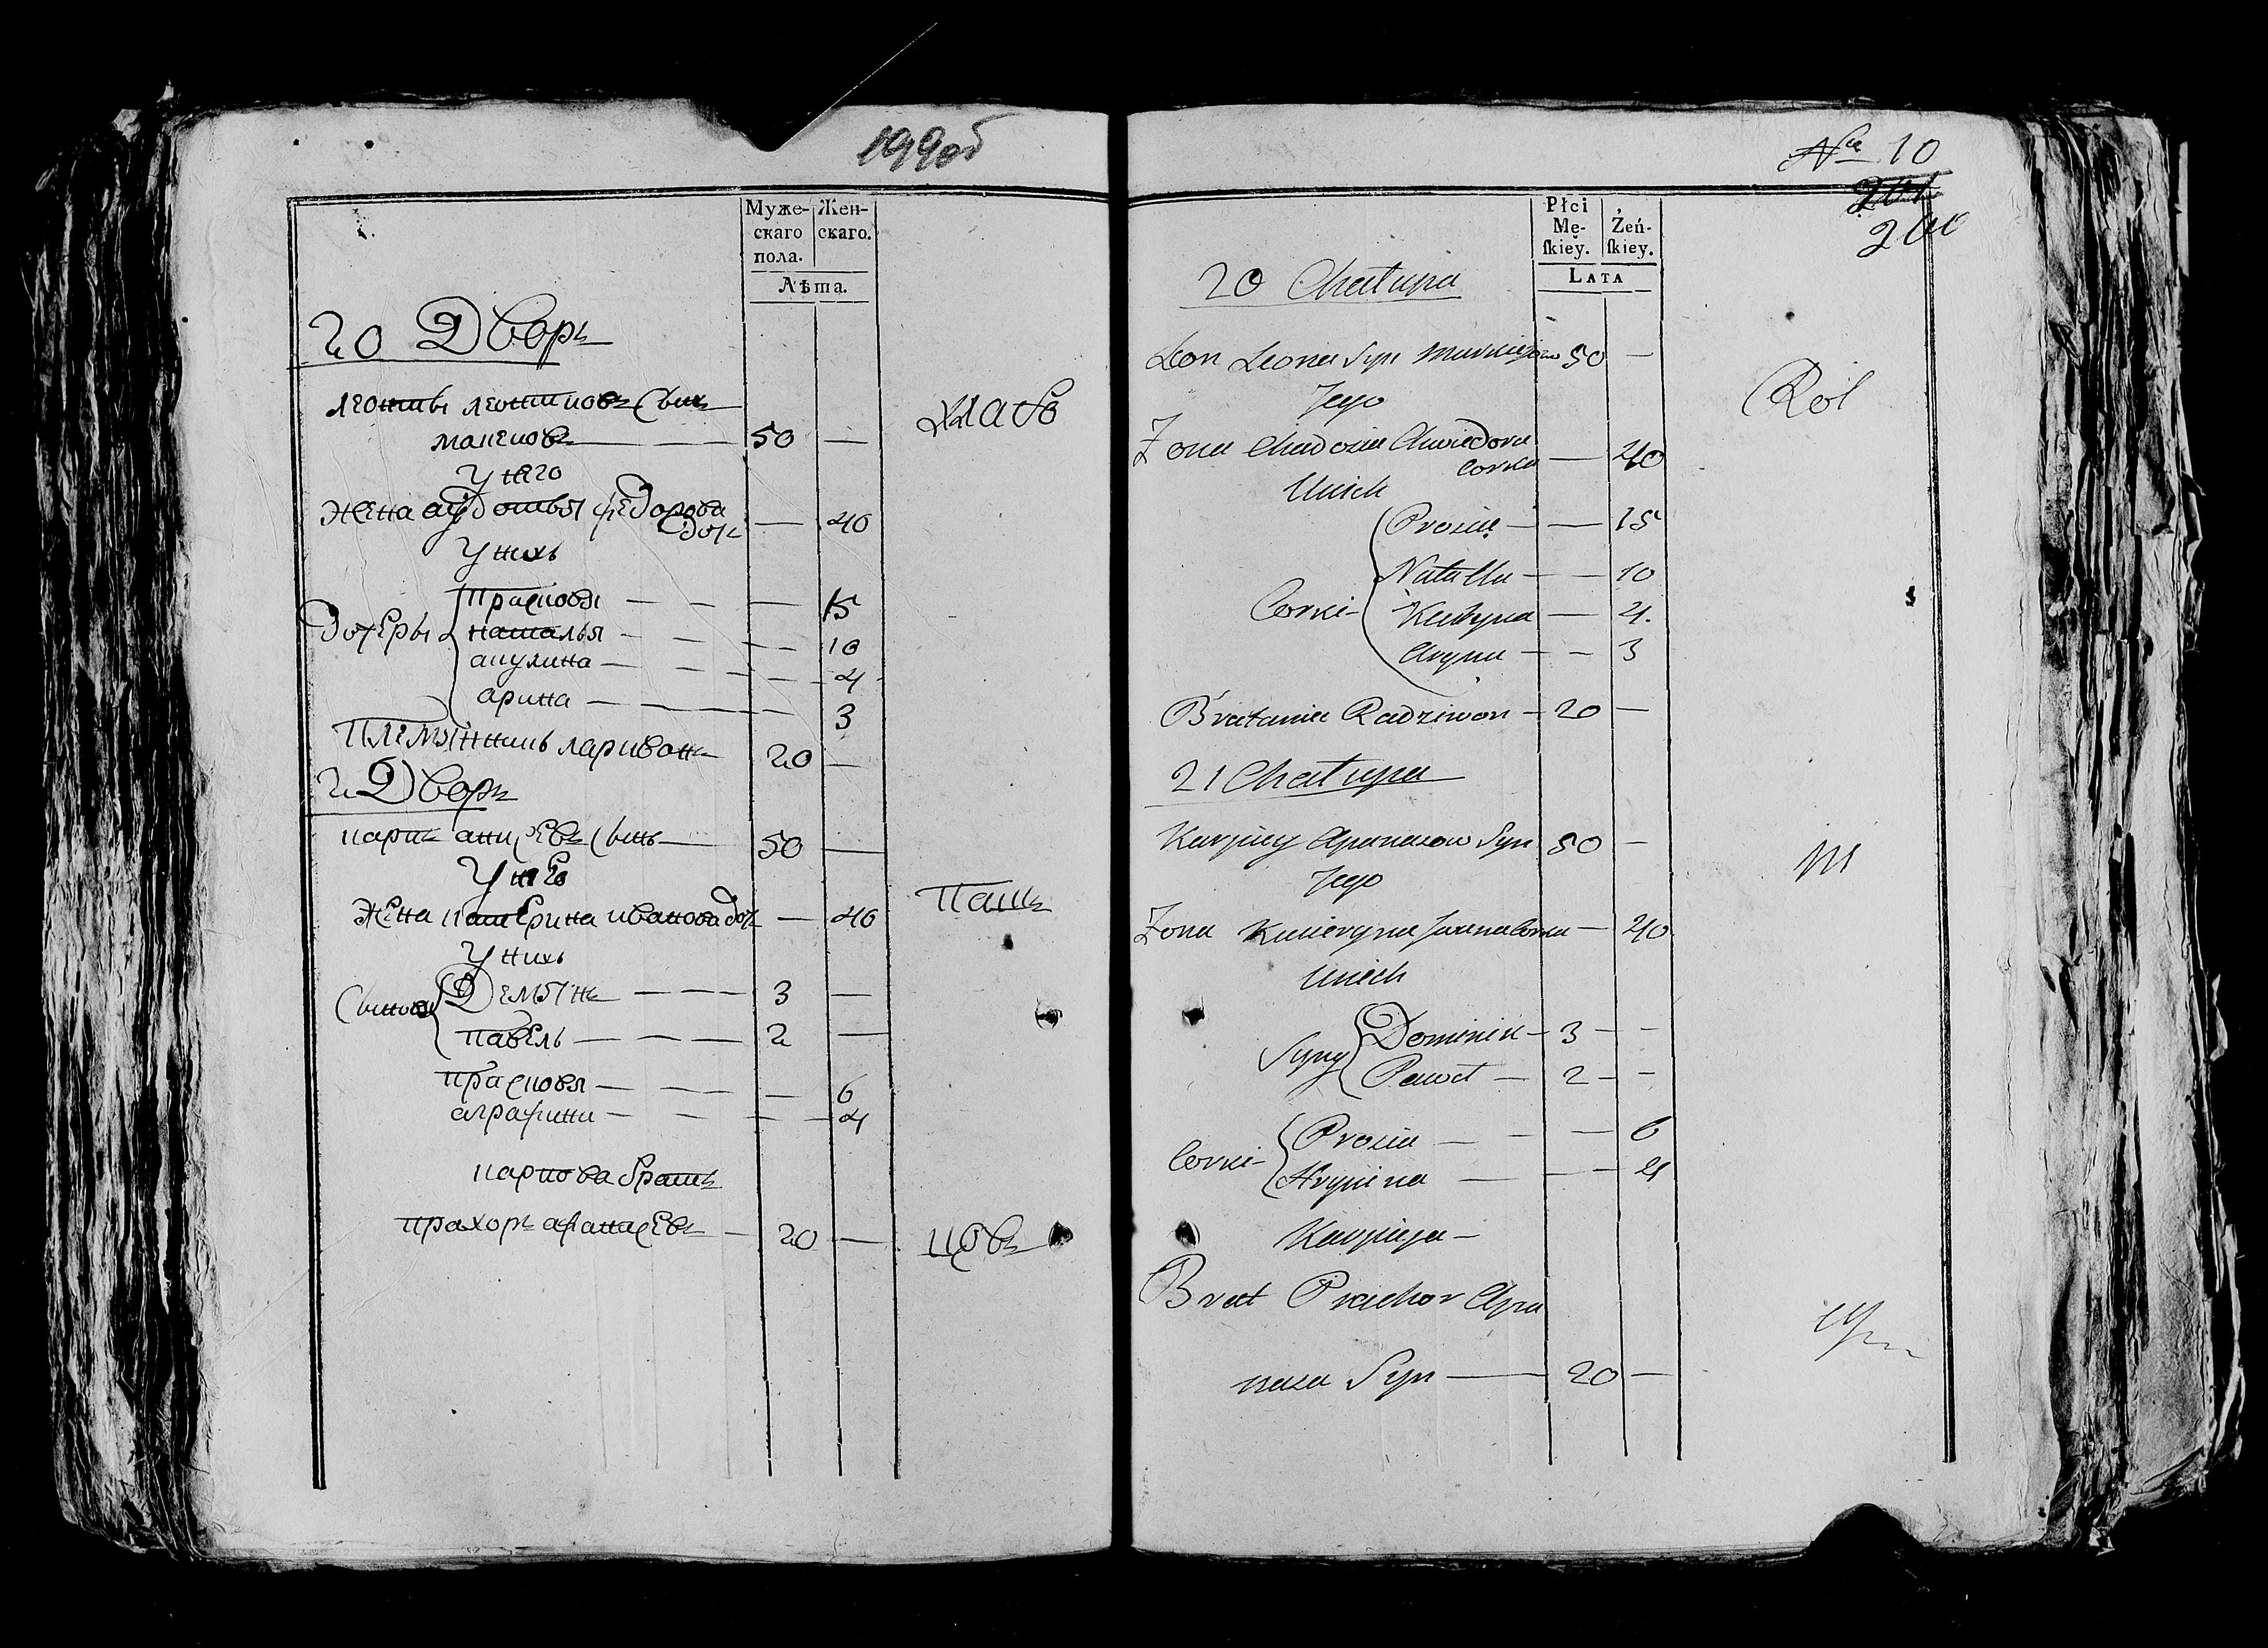 199об
Муже- Жен-
скаго скаго.
пола.
Лѣта.
20 Дворъ
леонтьи леонтиовъ Сынъ
50 —
у него
жена авдотья федорова
дочь — 40
у нихъ
дочеры
Прасковья — 15
наталья — 10
акулина — 4
арина — 3
Племянникъ ларивонъ 20 —
Дворъ
карпъ Сынъ — 50 —
У него
Жена катерина иванова дочь — 40
У нихъ
Сыновья
Демянъ — 3 —
павель — 2 —
прасковья — 6
аграфини — 4
карпова братъ
прахоръ афанасевъ — 20 —
хлаbo
Пашъ
№ 10
201
200
Płci
Mę- Żeń-
ſkiey. ſkiey.
LATA
20 Chałupa
Leon Leona Syn 50 —
Jego
Zona Chadosia Chwiedora
corka — 40
Unich
Corki
Prosia — 15
Natalla — 10
Kulyna — 4.
Aryna — 3
Bratania Radziwon — 20 —
21 Chałupa
Karpiey Apanasow Syn 50 —
Jego
Zona Kacieryna Iwana Corka — 40
Unich
Syny
Dominik — 3 —
Paweł — 2 —
Corki
Prosia — 6
Hrypina — 4
Karpieja —
Brat Prachor Apa
nasa Syn — 20 —
Rol